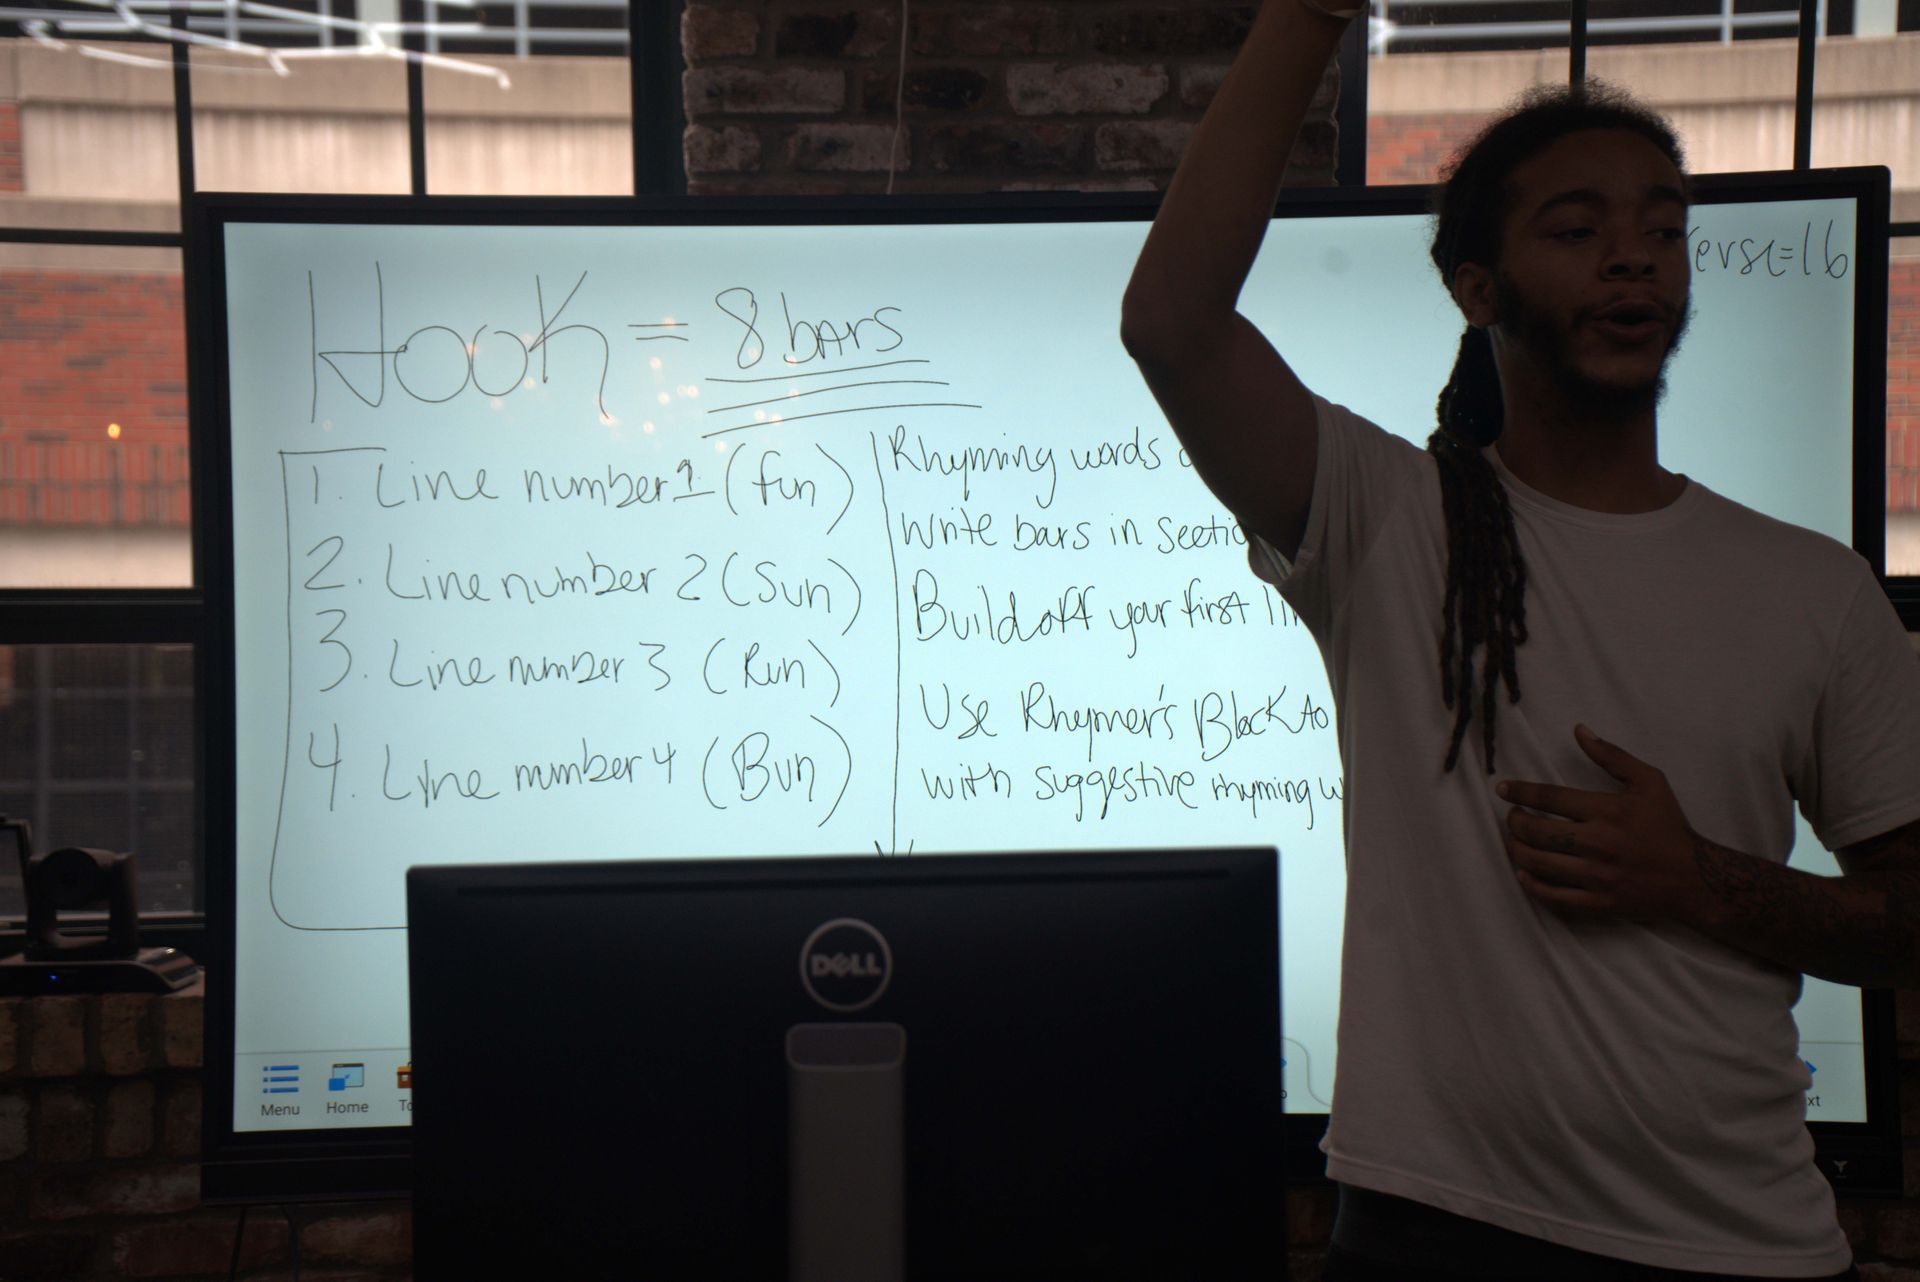 Hook = 8 bars
erse=16
1. Line number 1 (fun)
2. Line number 2 (Sun)
3. Line number 3 (Run)
4. Line number 4 (Bun)
Rhyming words
Write bars in
Build off your first
Use Rhymer's Block to
with suggestive rhyming
DELL
Menu
Home